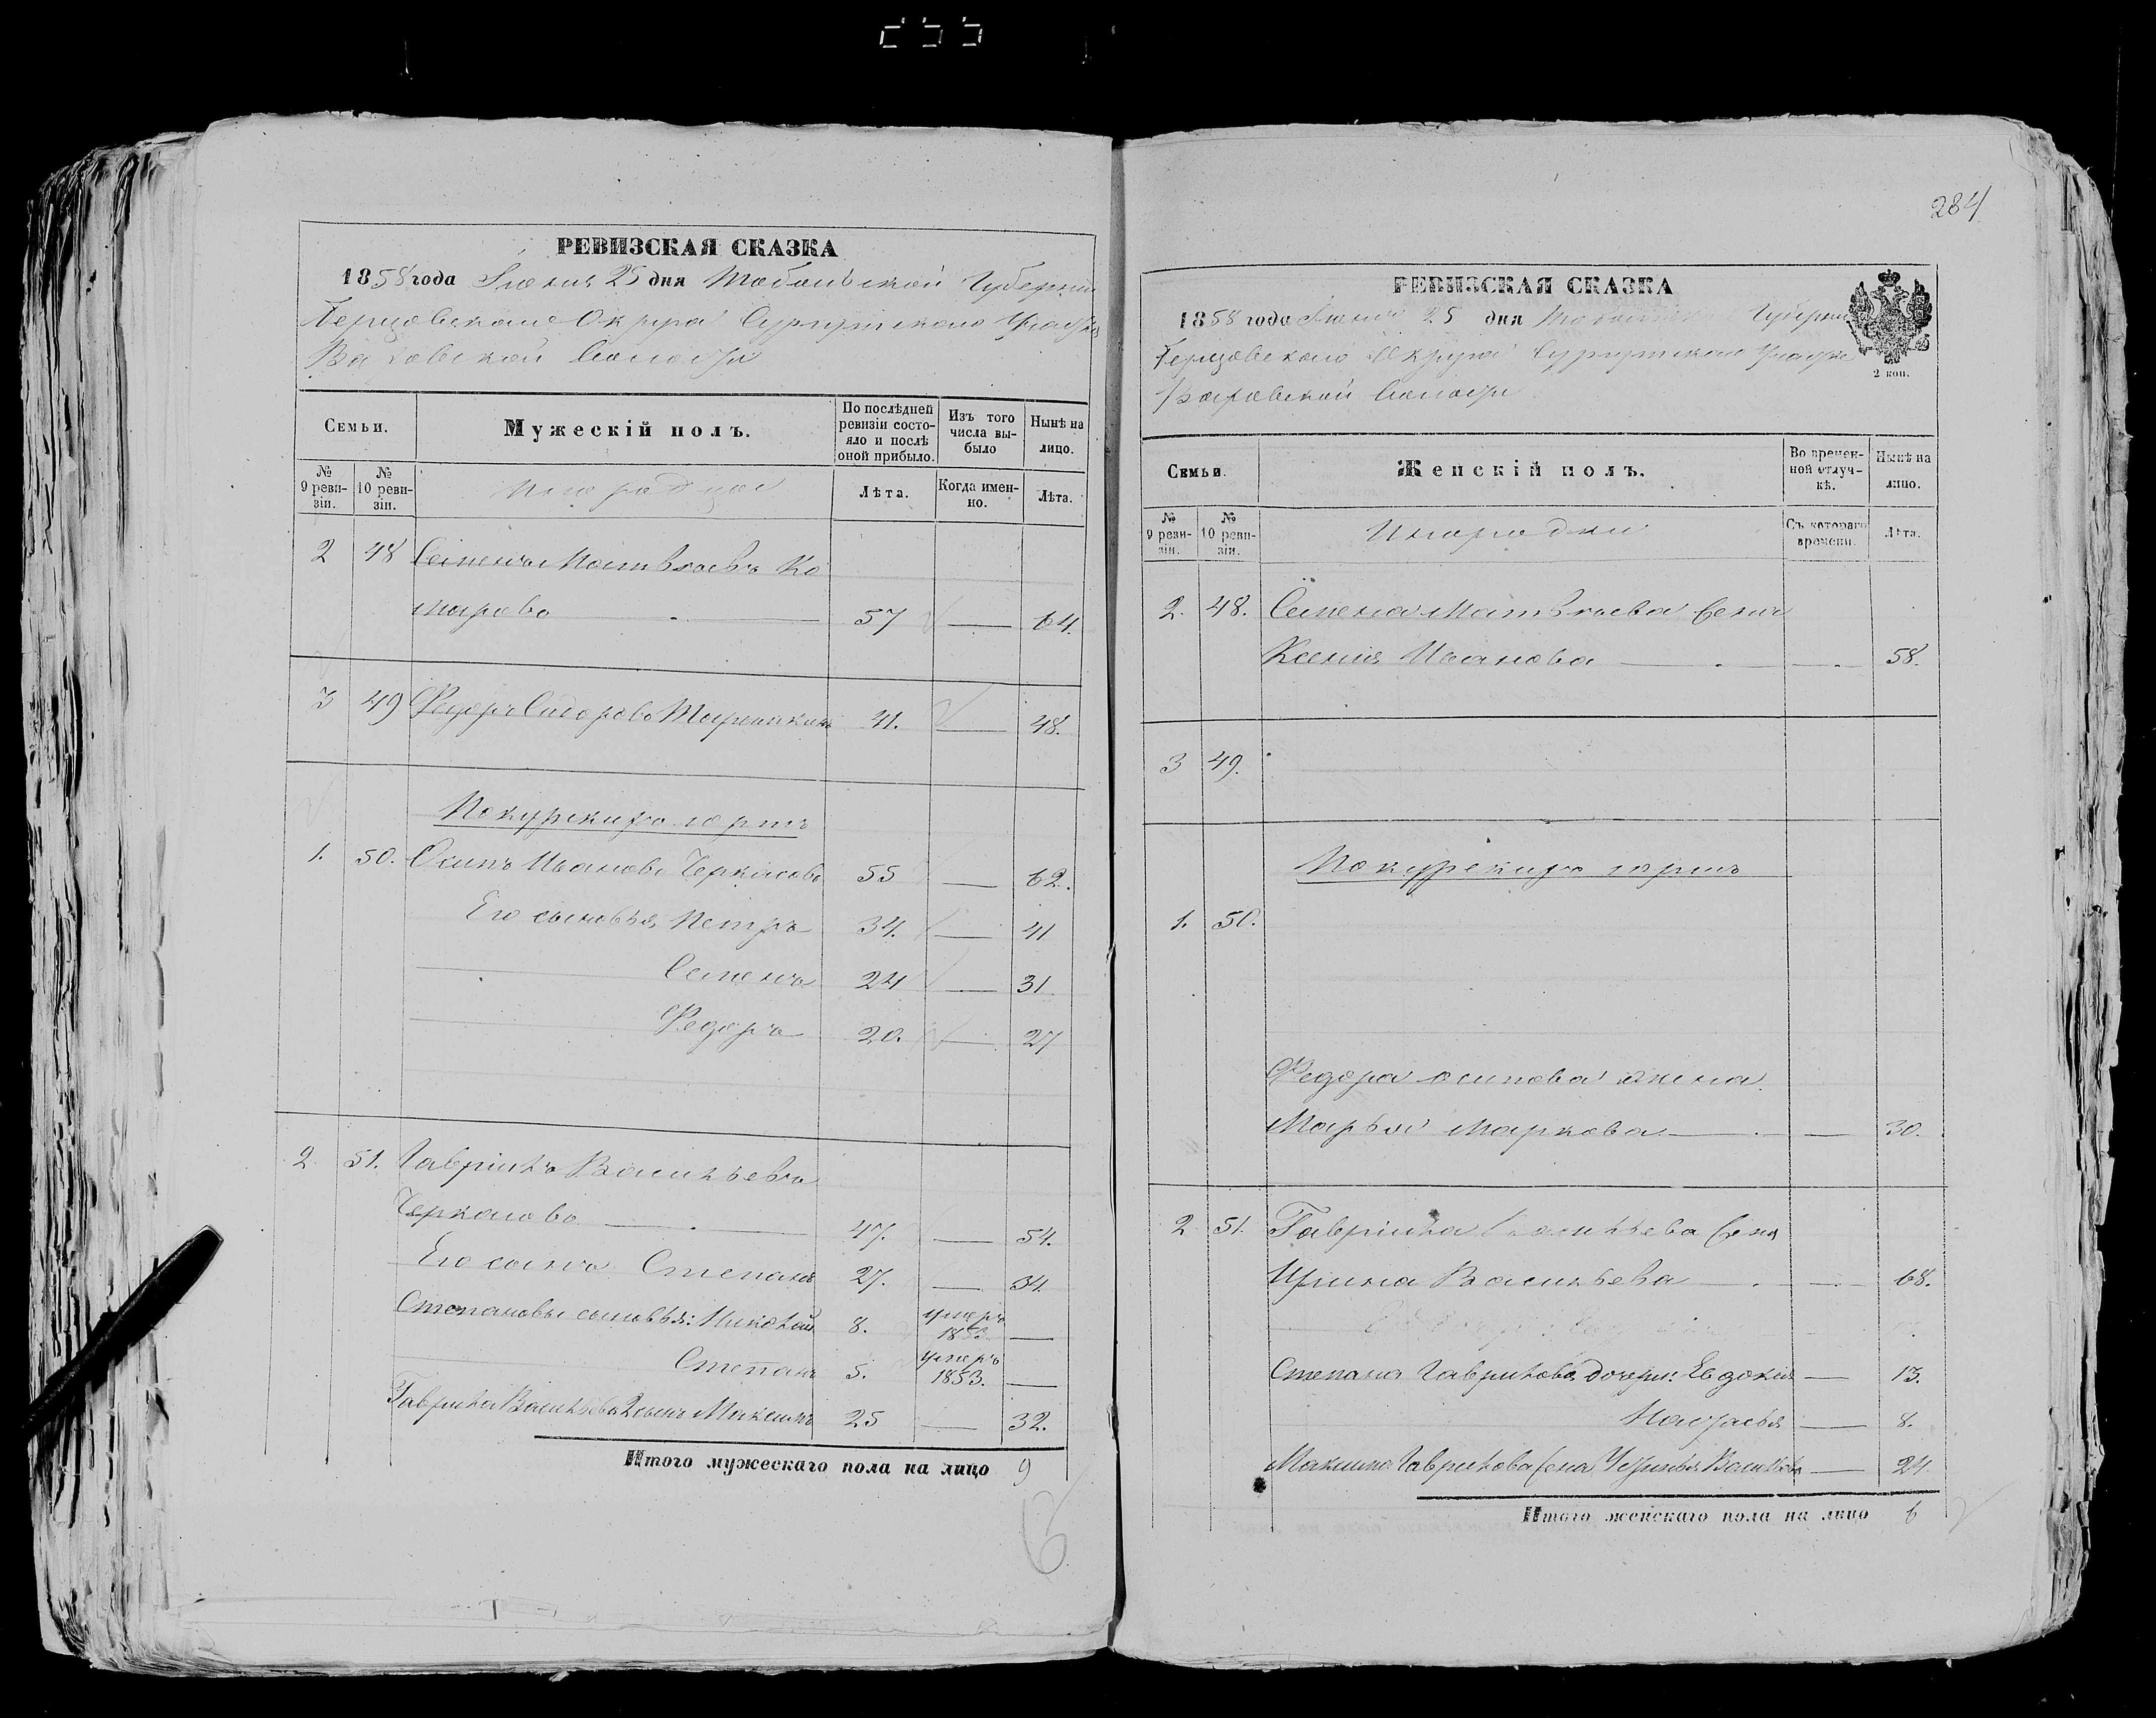 284
РЕВИЗСКАЯ СКАЗКА
1858 года Іюня 25 дня Тобольской Губерніи
Березовскаго Округа Сургутскаго
Ваховской Волости
Семьи.
Мужескій полъ.
По послѣдней ревизіи состояло и послѣ оной прибыло.
Изъ того числа выбыло
Нынѣ на лицо.
№ 9 ревизіи.
№ 10 ревизіи.
Инородцы
Лѣта.
Когда именно.
Лѣта.
2 48 Семенъ Матвѣевъ Ко
маровъ 57 — 64.
3 49 Федоръ Сидоровъ 41. — 48.
Покурскихъ юртъ
1. 50. Осипъ Ивановъ Черкасовъ 55 — 62.
Его сыновья, Петръ 34. — 41
Семенъ 24 — 31.
Федоръ 20. — 27
2. 51. Гаврилъ Васильевъ
Черкасовъ 47. — 54.
Его сынъ Степанъ 27. — 34.
Степановы сыновья: Николай 8. умеръ 1853. —
Степанъ 5. умеръ 1853. —
Гаврила Васильева 2 сынъ Максимъ 25 — 32.
Итого мужескаго пола на лицо 9
6
РЕВИЗСКАЯ СКАЗКА
1858 года Іюня 25 дня Тобольской Губерніи
Березовскаго Округа Сургутскаго
Ваховской Волости
2 коп.
Семьи.
Женскій полъ.
Во временной отлучкѣ.
Нынѣ на лицо.
№ 9 ревизіи.
№ 10 ревизіи.
Инородки
Съ котораго времени.
Лѣта.
2. 48. Семена Матвѣева жена
Ксенія Иванова — — 58.
3 49.
Покурскихъ юртъ
1. 50.
Федора Осипова жена
Марья Маркова — — 30.
2 51. Гаврила Васильева жена
Ирина Васильева — — 68.
Степана Гаврилова дочери: Евдокія — 13.
Настасья — 8.
Максима Гаврилова жена Васильева — 24.
Итого женскаго пола на лицо 6